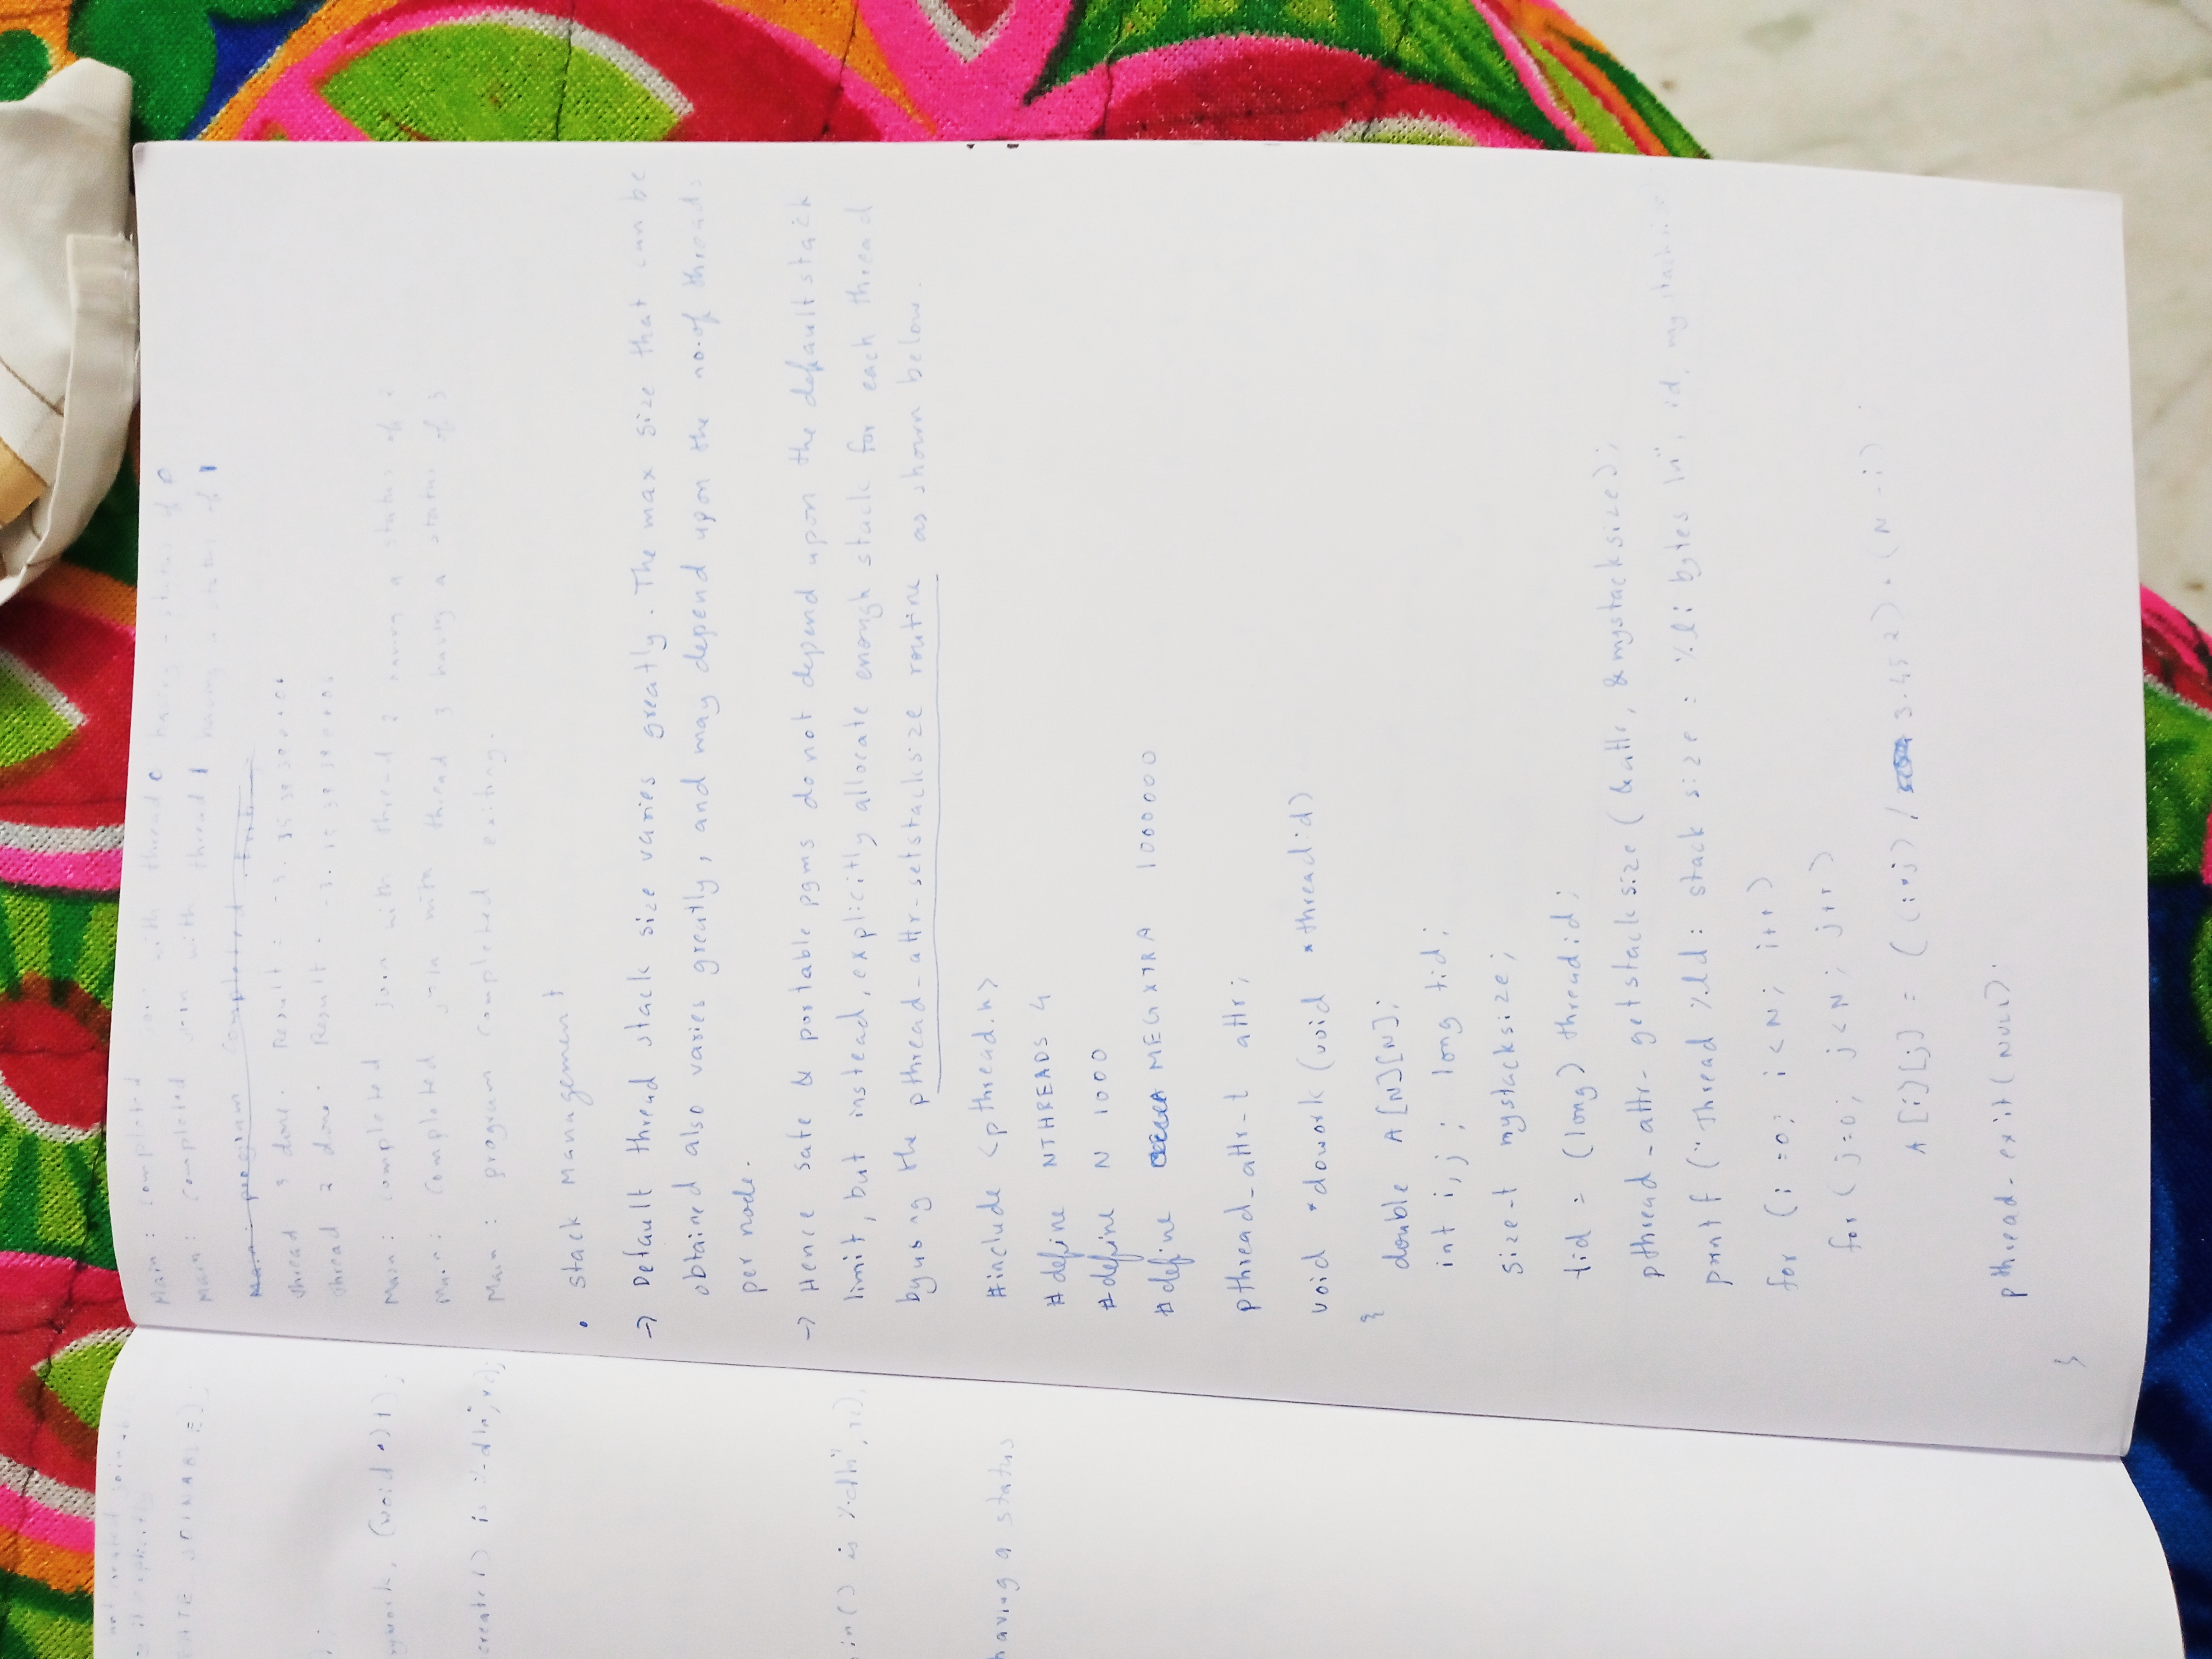 Main : completed join with thread 0 having a status of 0
Main : completed join with thread 1 having a status of 1
Main : program completed
thread 3 done. Result =
thread 2 done. Result =
Main : completed join with thread 2 having a status of 2
Main : completed join with thread 3 having a status of 3
Main : program completed exiting.
• Stack Management
→ Default thread stack size varies greatly. The max size that can be
obtained also varies greatly, and may depend upon the no.of threads
per node.
→ Hence safe & portable pgms do not depend upon the default stack
limit, but instead, explicitly allocate enough stack for each thread
by using the pthread_attr_setstacksize routine as shown below.
#include <pthread.h>
# define NTHREADS 4
# define N 1000
# define MEGXTRA 1000000
pthread_attr_t attr;
void *dowork (void *threadid)
{
double A[N][N];
int i,j; long tid;
size_t mystacksize;
tid = (long) threadid;
pthread_attr_getstacksize (&attr, &mystacksize);
printf ("Thread %ld: stack size : %li bytes \n", id, mystacksize)
for (i =0; i<N; i++)
for (j=0; j<N; j++)
A[i][j] = ((i*j)/3.452)*(N-i)
pthread_exit(NULL);
}
not created joinab
explicitly
EATE_JOINABLE);
);
mywork, (void *)1);
create() is %d\n", rc);
in() is %d\n", rc),
having a status